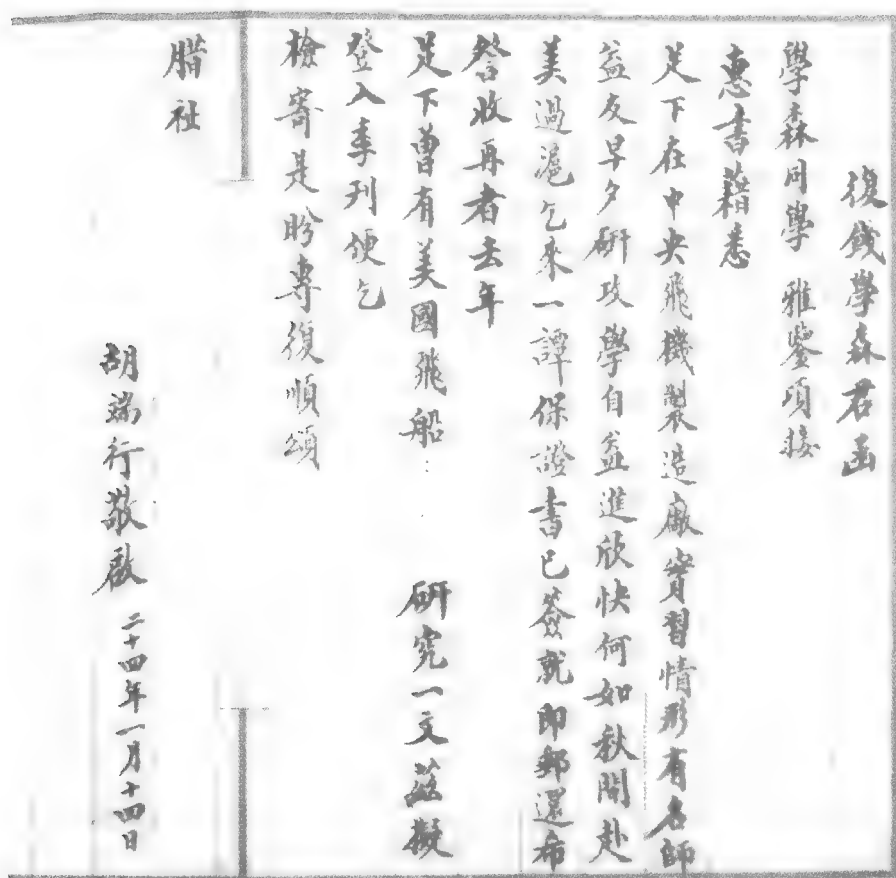 復錢學森君函
學森同學 雅鑒頃接
惠書藉悉
足下在中央飛機製造廠實習情形有名師
益友早夕研攻學自益進欣快何如秋間赴
美過滬乞來一譚保證書已簽就即郵還希
詧收再者去年
足下曹有美國飛船……研究一文茲擬
登入季刊便乞
檢寄是盼專復順頌
腊祉
胡端行敬啟 二十四年一月十四日